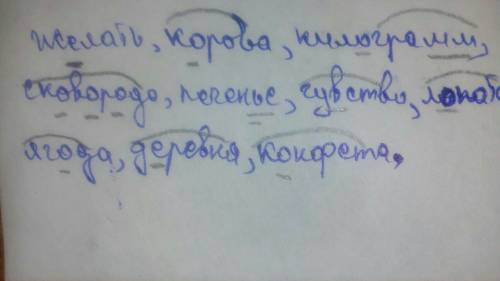 желать, корова, килограмм,
сковорода, печенье, чувство, лопата
ягода, деревня, конфета.